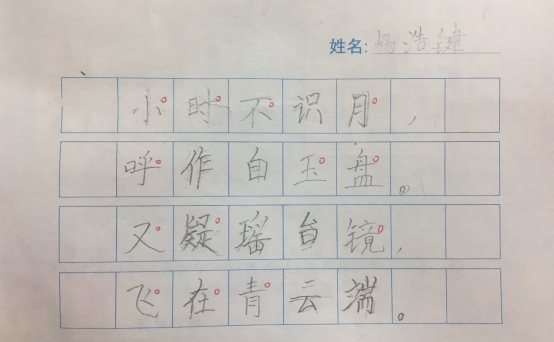 姓名: 杨浩键
小时不识月，
呼作自玉盘。
又疑瑶台镜，
飞在青云端。